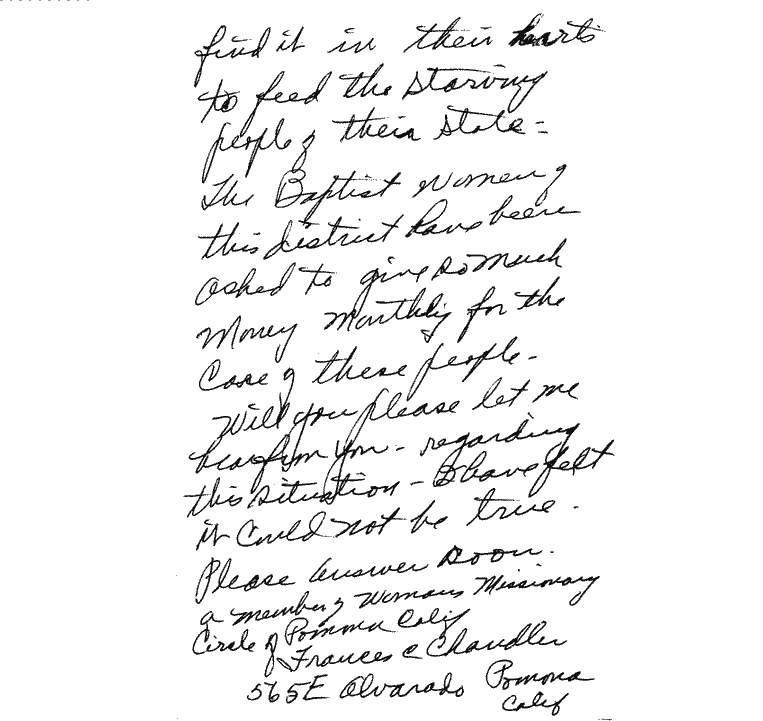 find it in their hearts
to feed the starving
people of their state -
The Baptist women of
this district have been
asked to give so much
Money monthly for the
Care of these people -
Will you please let me
hear from you - regarding
this situation - I have felt
it could not be true.
Please answer soon.
a member of Womans Missionary
Circle of Pomona Calif
Frances C Chandler
565 E Alvarado Pomona
Calif